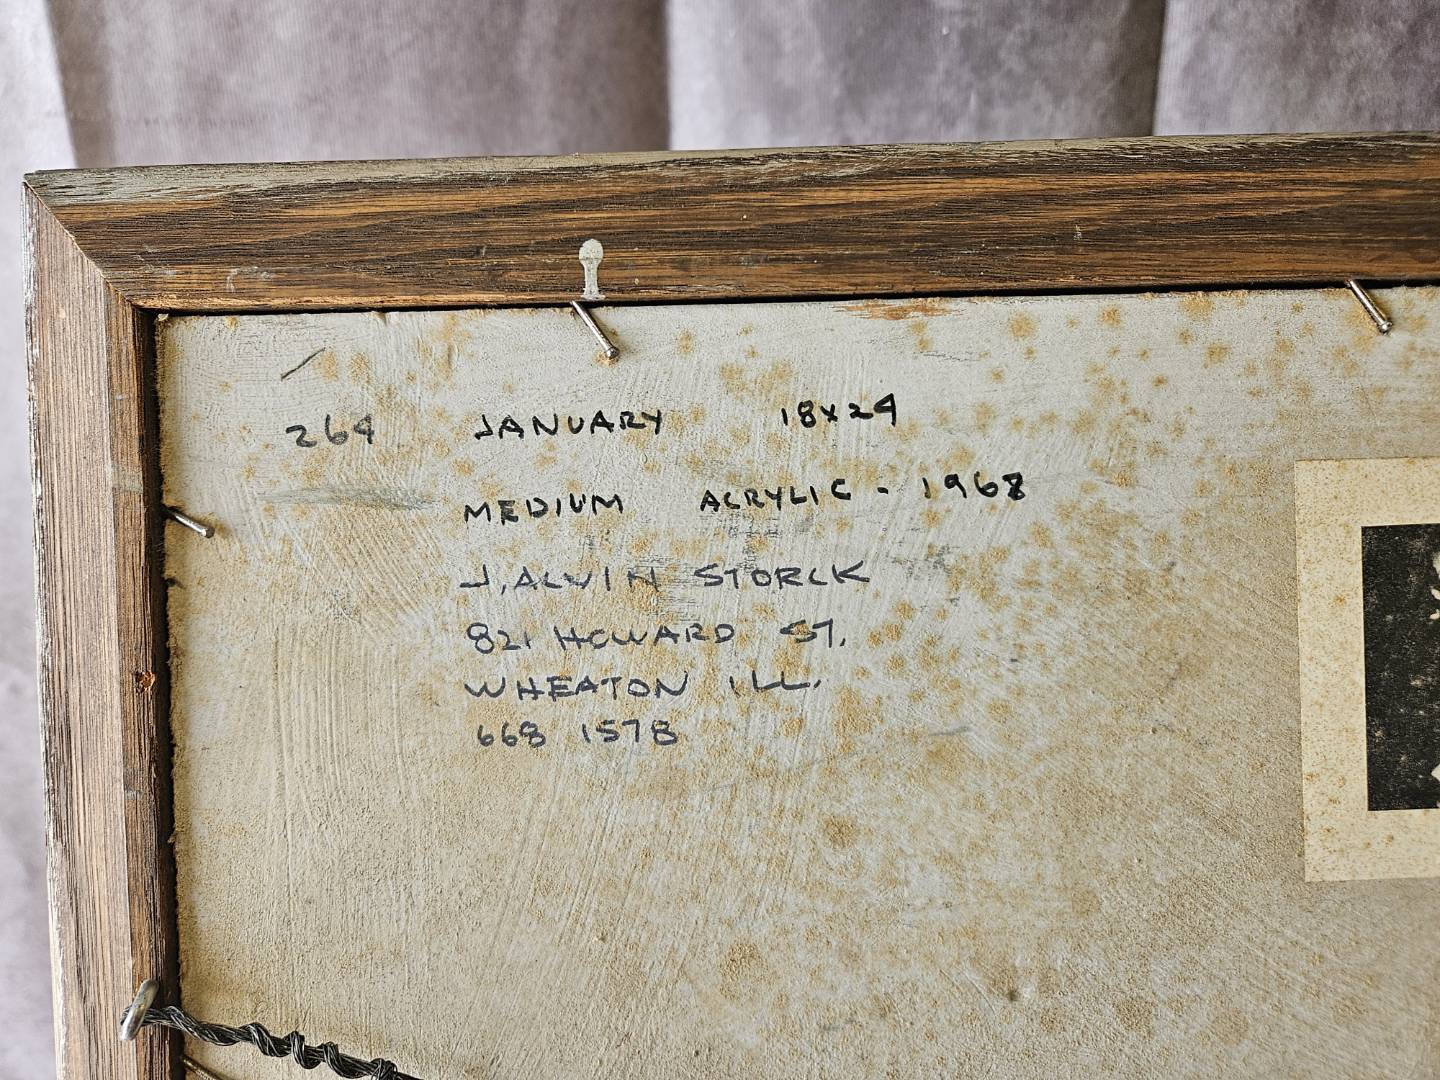 264 JANUARY 18x24
MEDIUM ACRYLIC - 1968
J. ALVIN STORCK
821 HOWARD ST.
WHEATON ILL.
668 1578